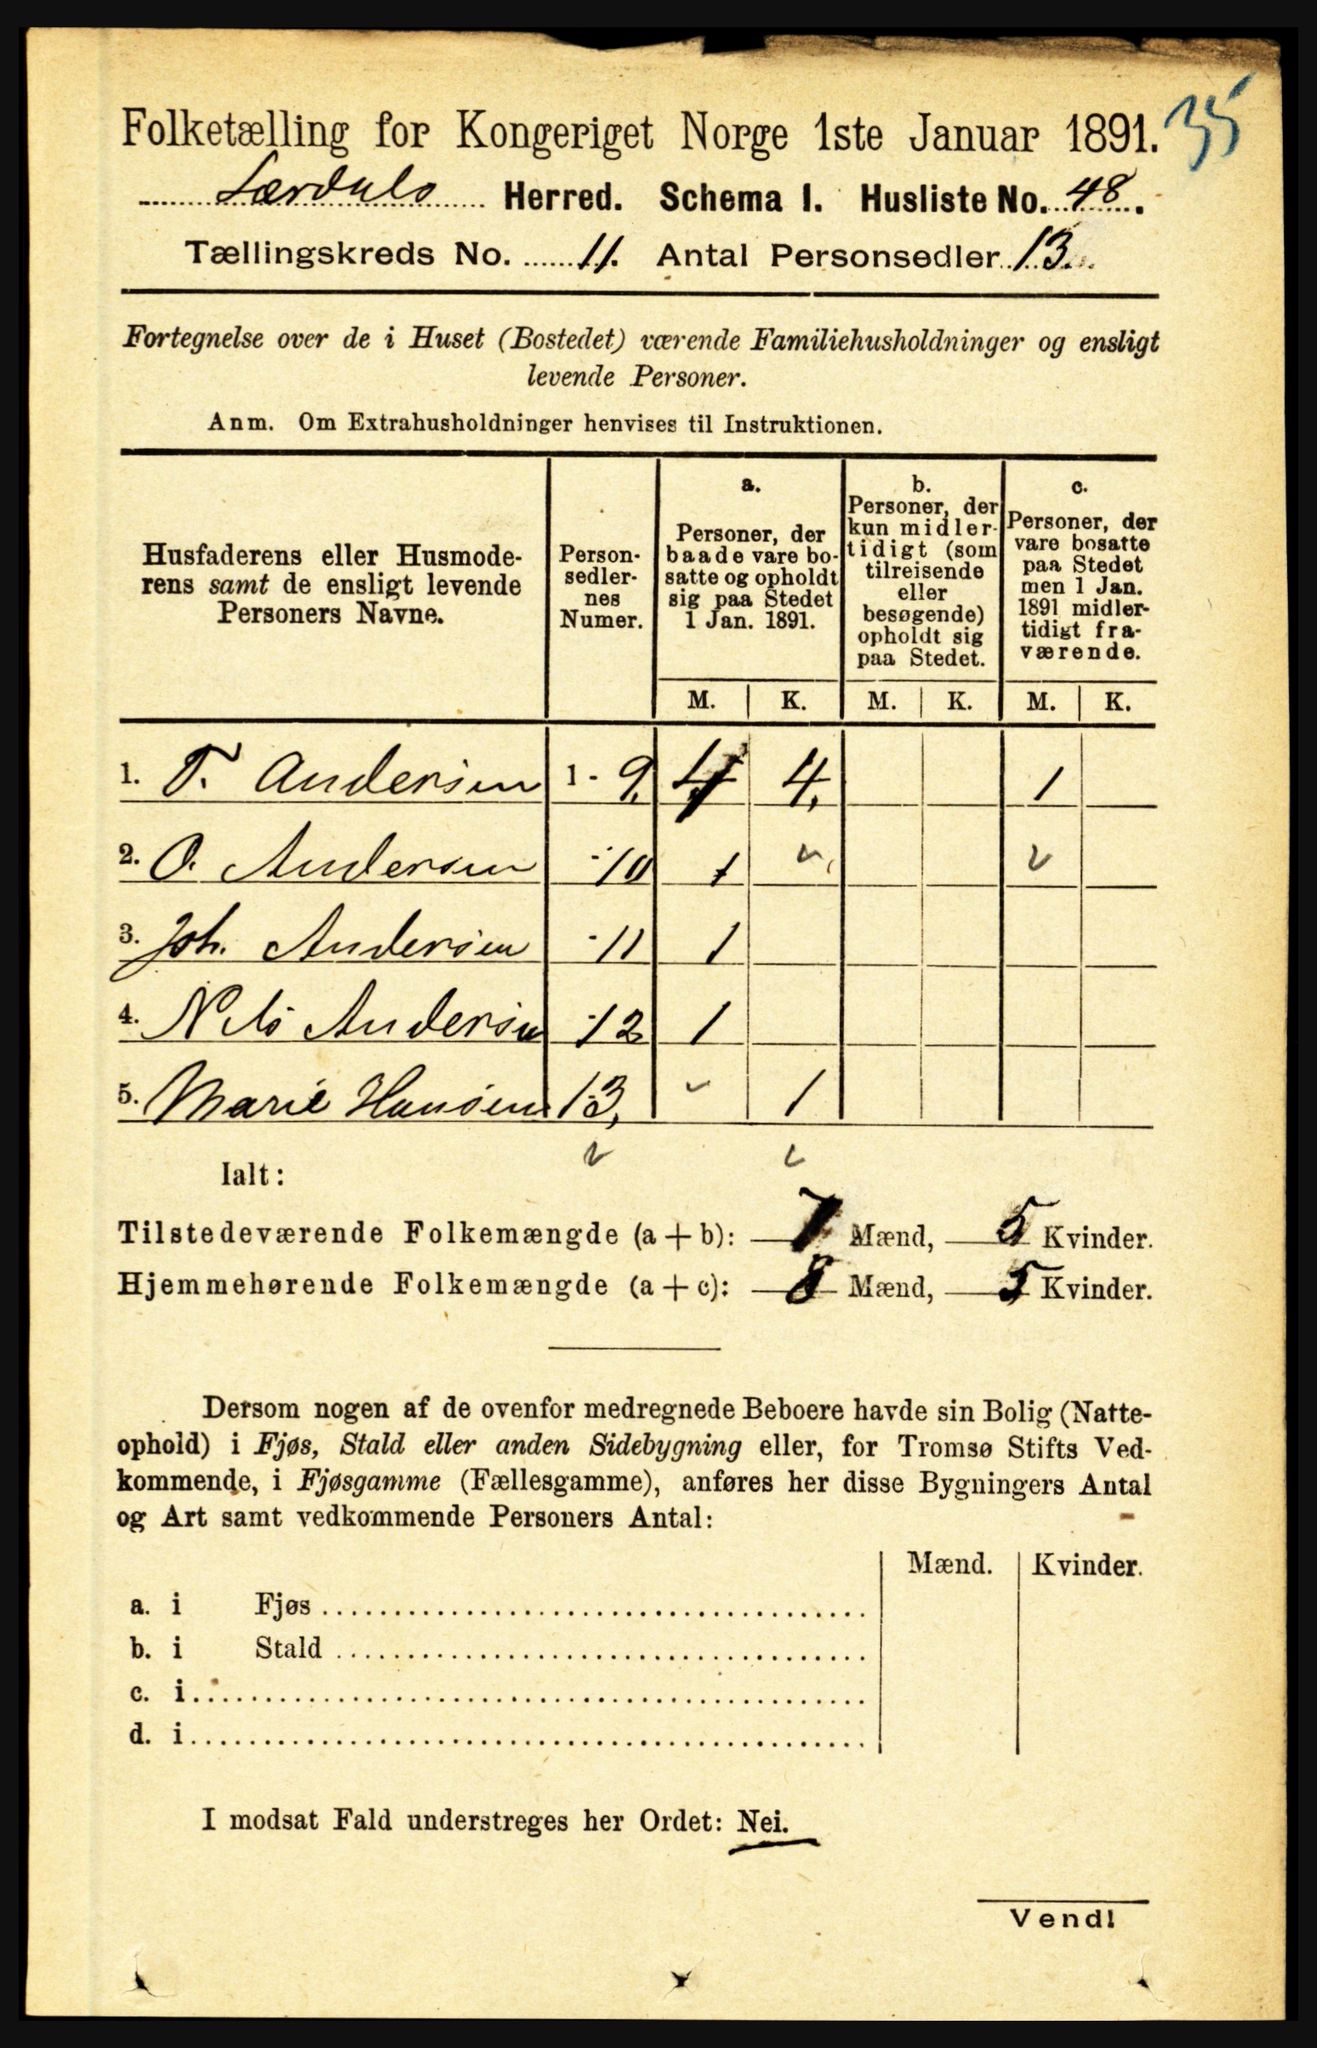 35
Folketælling for Kongeriget Norge 1ste Januar 1891.
Lærdals Herred. Schema I. Husliste No. 48.
Tællingskreds No. 11. Antal Personsedler 13.
Fortegnelse over de i Huset (Bostedet) værende Familiehusholdninger og ensligt
levende Personer.
Anm. Om Extrahusholdninger henvises til Instruktionen.
Husfaderens eller Husmode-
rens samt de ensligt levende
Personers Navne.
Person-
sedler-
nes
Numer.
a.
Personer, der
baade vare bo-
satte og opholdt
sig paa Stedet
1 Jan. 1891.
b.
Personer, der
kun midler-
tidigt (som
tilreisende
eller
besøgende)
opholdt sig
paa Stedet.
c.
Personer, der
vare bosatte
paa Stedet
men 1 Jan.
1891 midler-
tidigt fra-
værende.
M. K. M. K. M. K.
1. T. Andersen 1 - 9. 4 4. 1
2. O. Andersen -10 1
3. Joh. Andersen -11 1
4. Nils Andersen -12 1
5. Marie Hansen 13, 1
Ialt:
Tilstedeværende Folkemængde (a + b): 7 Mænd, 5 Kvinder.
Hjemmehørende Folkemængde (a + c): 8 Mænd, 5 Kvinder.
Dersom nogen af de ovenfor medregnede Beboere havde sin Bolig (Natte-
ophold) i Fjøs, Stald eller anden Sidebygning eller, for Tromsø Stifts Ved-
kommende, i Fjøsgamme (Fællesgamme), anføres her disse Bygningers Antal
og Art samt vedkommende Personers Antal:
Mænd. Kvinder.
a. i Fjøs
b. i Stald
c. i
d. i
I modsat Fald understreges her Ordet: Nei.
Vend!